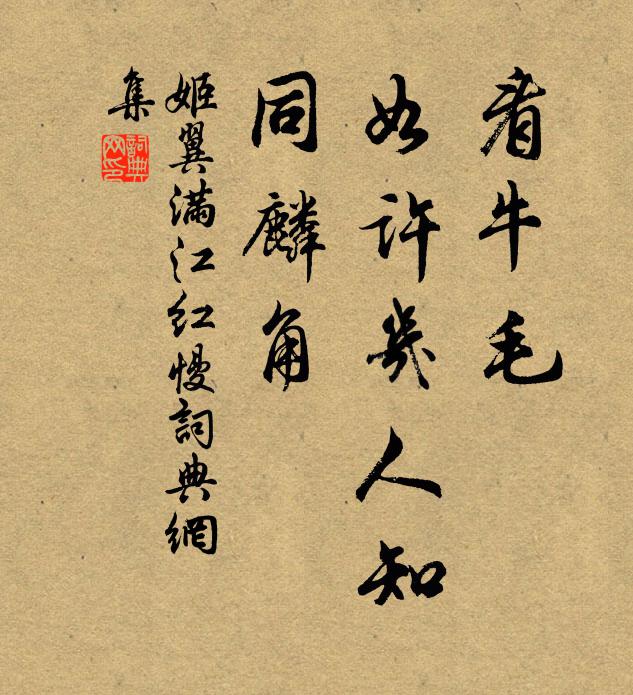 看牛毛
如许几人知
同麟角
姬翼满江红慢词典网
集
词典网印